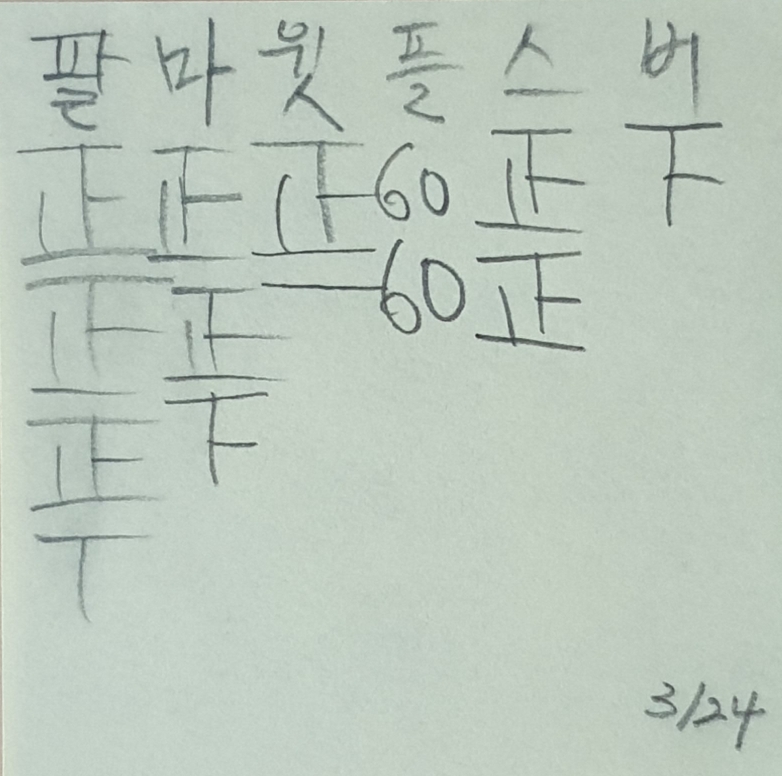 팔 마 윗 플 스 버
正 正 正 60 正 下
正 正 一 60 正
正 下
丅
3/24